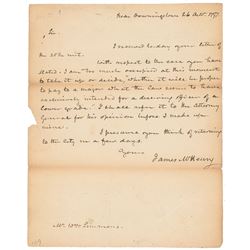 Near Downingtown 26 Octr. 1797.
Sir.
I received today your letter of
the 20th inst.
With respect to the case you have
stated. I am too much occupied at this moment
to take it up or decide, whether it will be proper
to pay to a major what the law seems to have
exclusively intended for a deserving officer of a
lower grade. I shall refer it to the Attorney
General for his opinion before I make up
mine.
I presume you think of returning
to the city in a few days.
Yours
James McHenry
Mr. Wm Simmons.